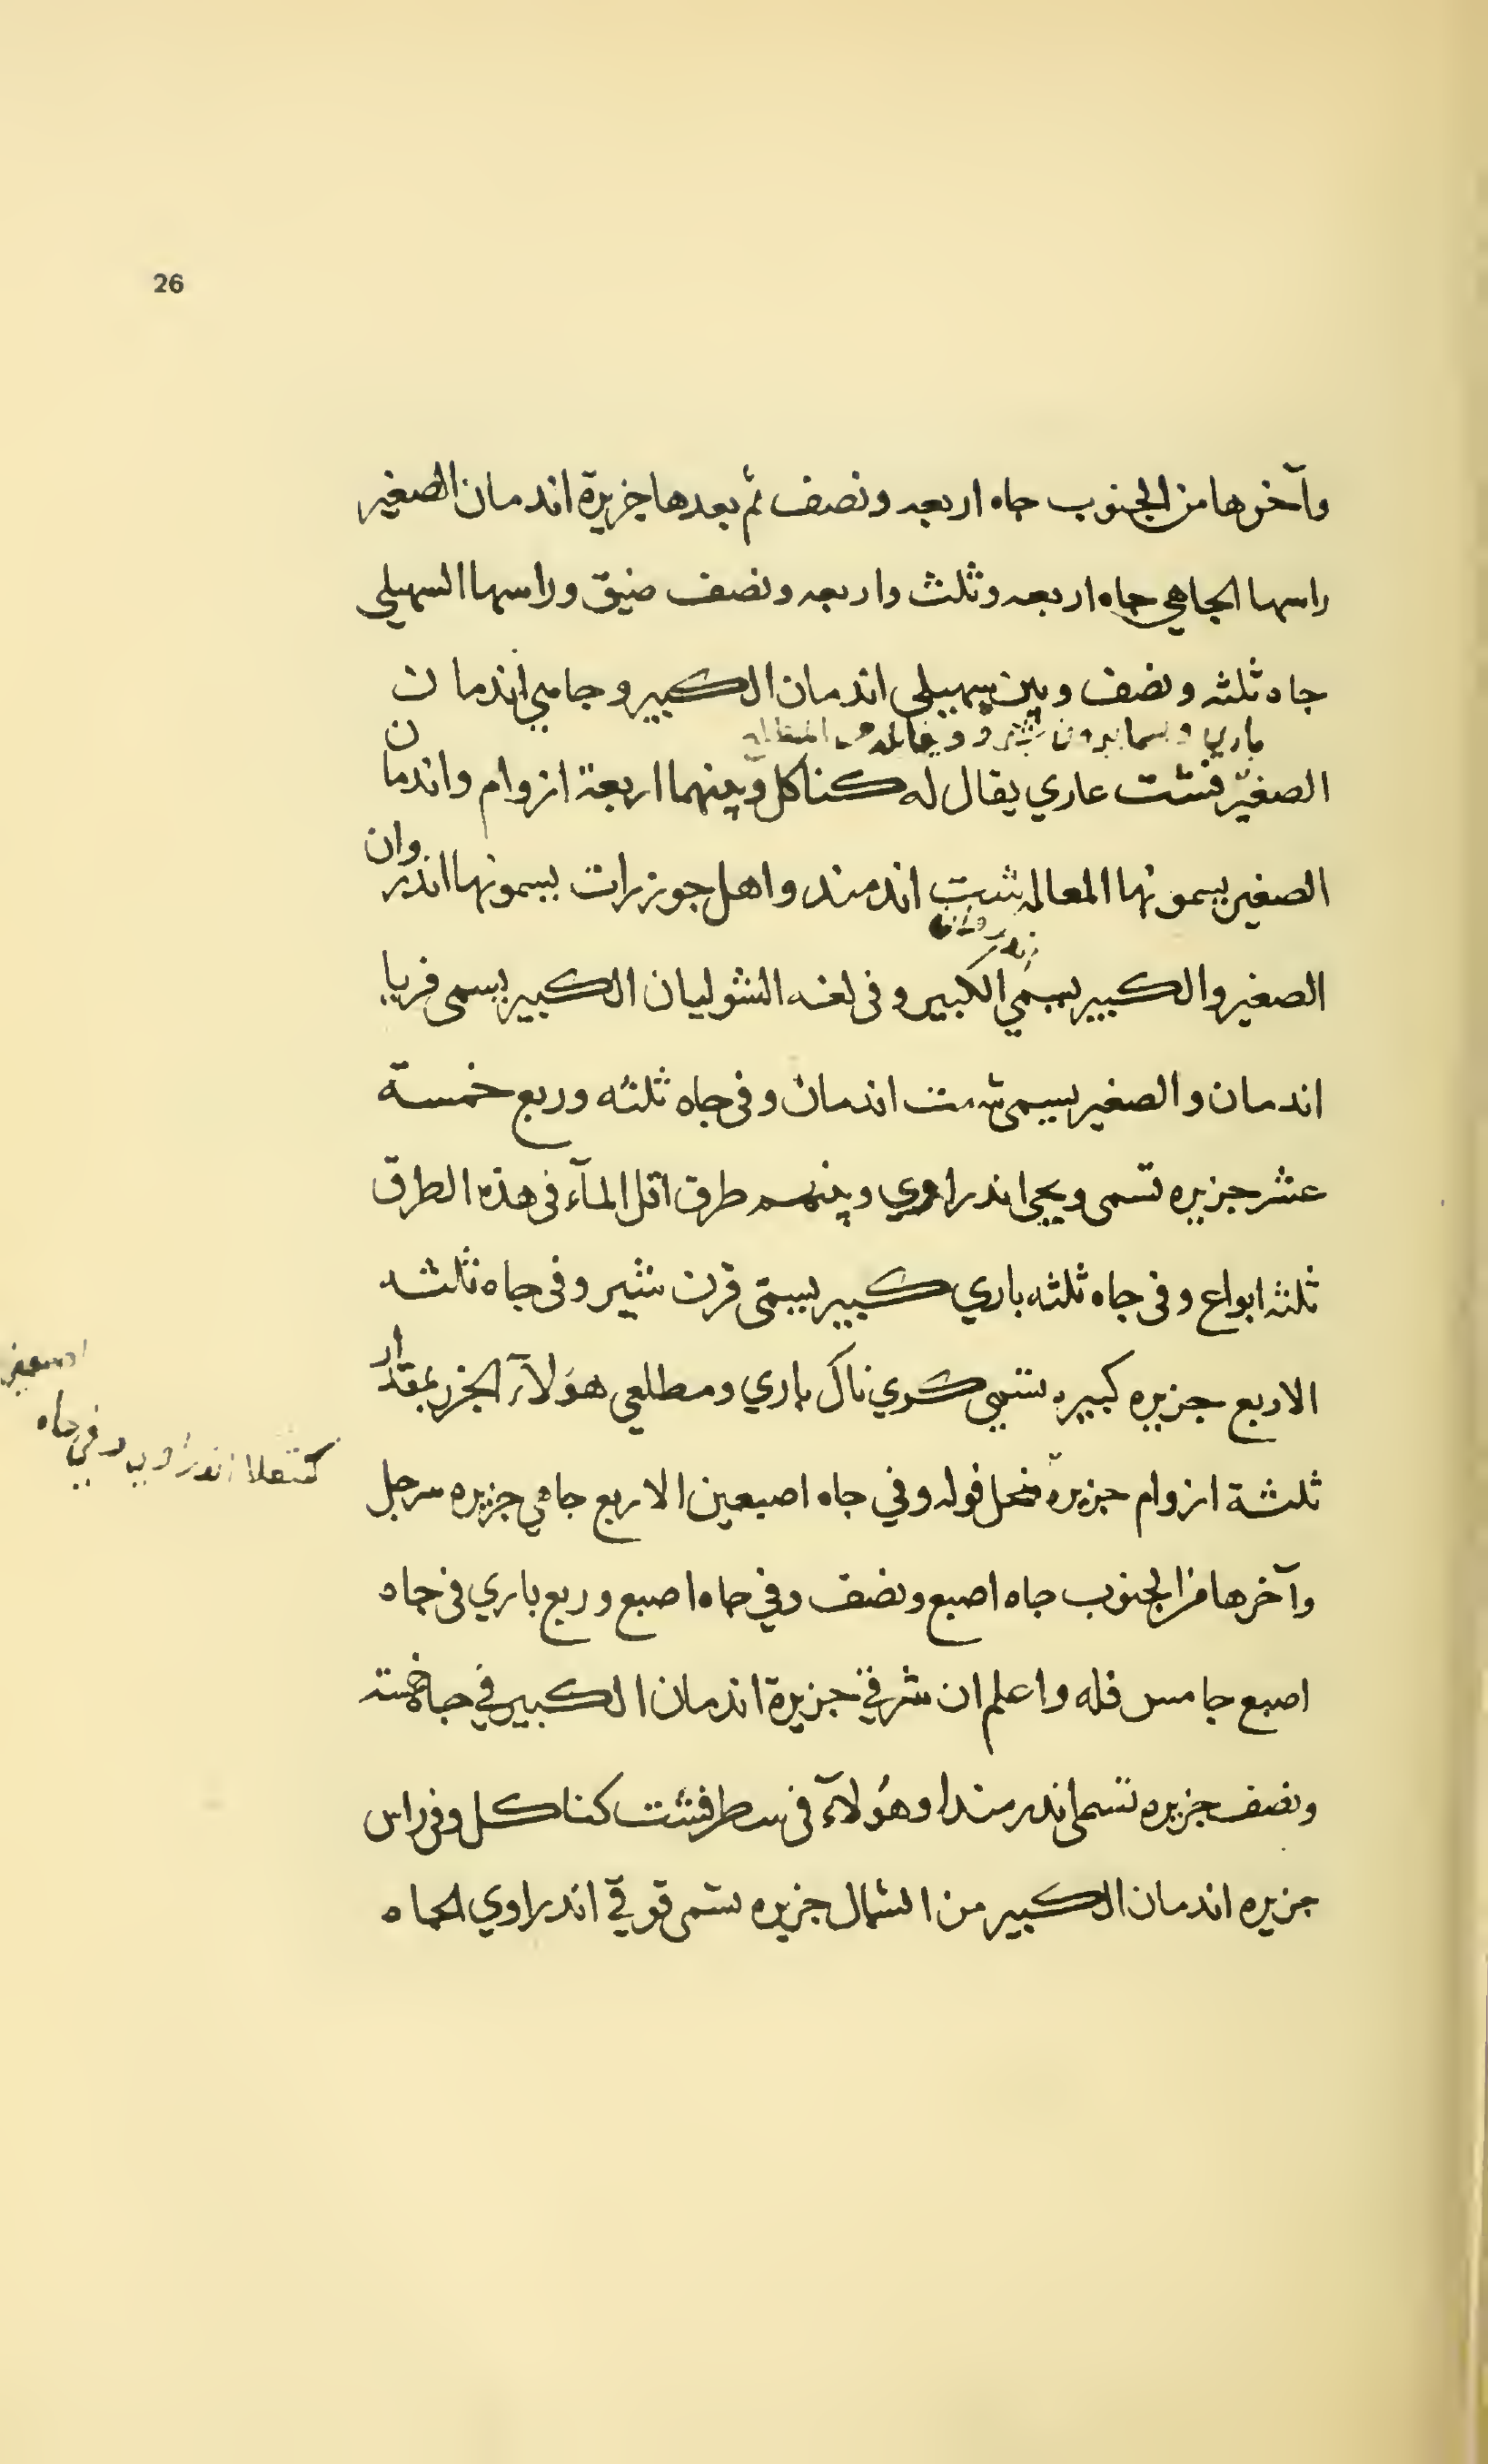 26
وآخرها من الجنوب جاه اربعه ونصف ثم بعدها جزيرة اندمان الصغير
راسها الجاهي جاه اربعه وثلث واربعه ونصف ضيق وراسها السهيلي
جاه ثلثه ونصف وبين سهيلي اندمان الكبير وجاهي اندمان
الصغير فشت عاري يقال له كناكل وبينهما اربعة ازوام واندمان
الصغير يسمونها المعالمه شت اندمند واهل جوزرات يسمونها اندروان
الصغير والكبير يسمي الكبير وفي لغه الشوليان الكبير يسمى فريا
اندمان والصغير يسمى شت اندمان وفي جاه ثلثه وربع خمسة
عشر جزيره تسمى ويجي اندراوي وبينهم طرق اقل المآء في هذه الطرق
ثلثه ابواع وفي جاه ثلثه باري كبير يسمى قرن شير وفي جاه ثلثه
الاربع جزيره كبيره تسمى كري ناك باري ومطلعي هؤلآء الجزر بمقدار
كنعلا اندراوي وفي جاه
ثلثة ازوام جزيرة فوله وفي جاه اصبعين الاربع جاهي جزيره سرجل
وآخرها من الجنوب جاه اصبع ونصف وفي جاه اصبع وربع باري في جاه
اصبع جامس فله واعلم ان شرقي جزيرة اندمان الكبير في جاه خمسه
ونصف جزيره تسمى اندرمندا وهؤلآء في سطر فشت كناكل وفي راس
جزيره اندمان الكبير من الشمال جزيره تسمى قوقي اندراوي الجاه